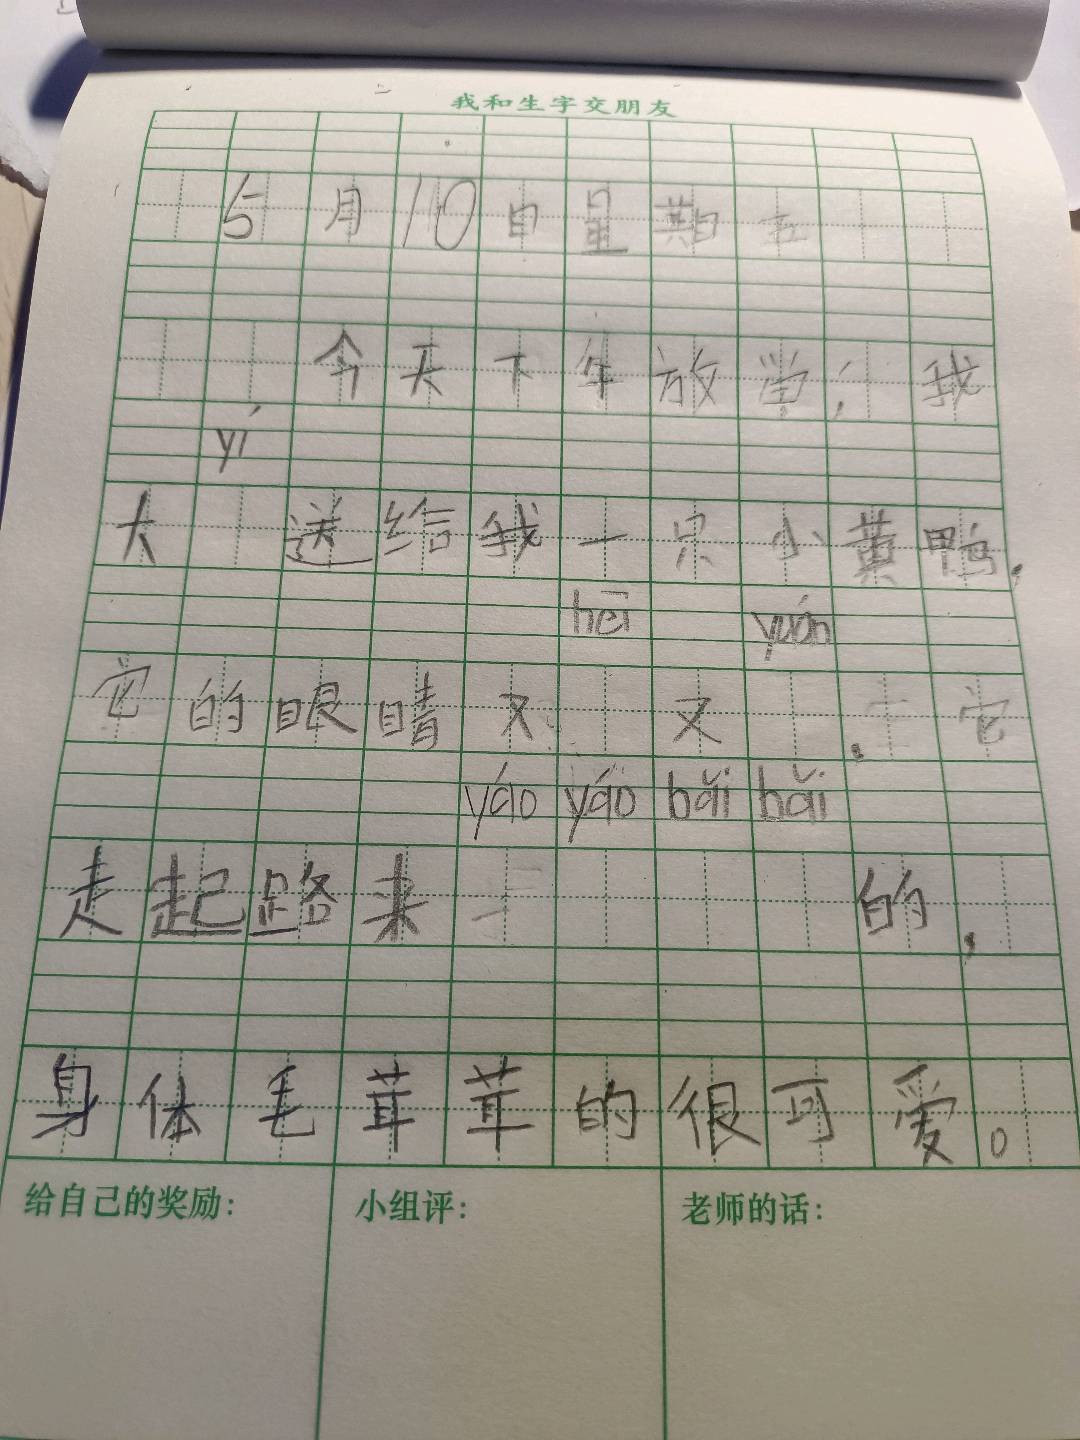 我和生字交朋友
5月10日星期五
今天下午放学，我
yí
大 送给我一只小黄鸭，
hēi yuán
它的眼睛又 又 ，它
yáo yáo bǎi bǎi
走起路来 的，
身体毛茸茸的很可爱。
给自己的奖励： 小组评： 老师的话：